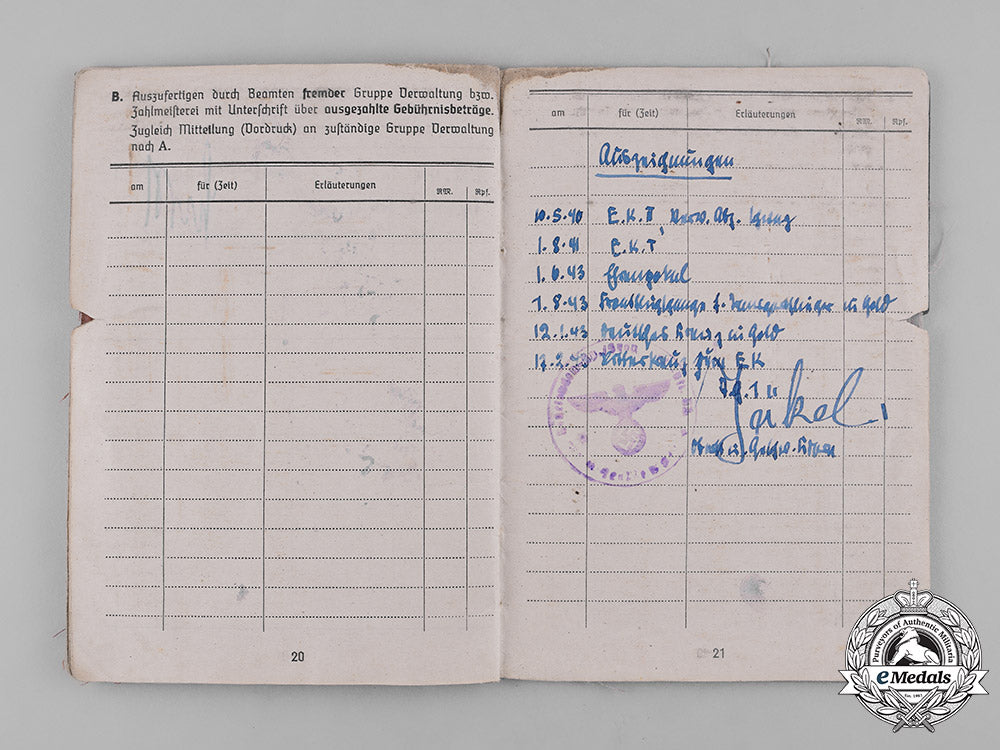 B. Auszufertigen durch Beamten fremder Gruppe Verwaltung bzw.
Zahlmeisterei mit Unterschrift über ausgezahlte Gebührnisbeträge.
Zugleich Mitteilung (Vordruck) an zuständige Gruppe Verwaltung
nach A.
am für (Zeit) Erläuterungen RM. Rpf.
20
am für (Zeit) Erläuterungen RM. Rpf.
Auszeichnungen
10.5.40 E.K. II, Verw. Abz.
1.8.41 E.K. I
1.6.43 Ehrenpokal
1.8.43 Frontflugspange f. in Gold
12.1.43 Deutsches Kreuz in Gold
Ritterkreuz zum E.K.
Jakel
21
Purveyors of Authentic Militaria
eMedals